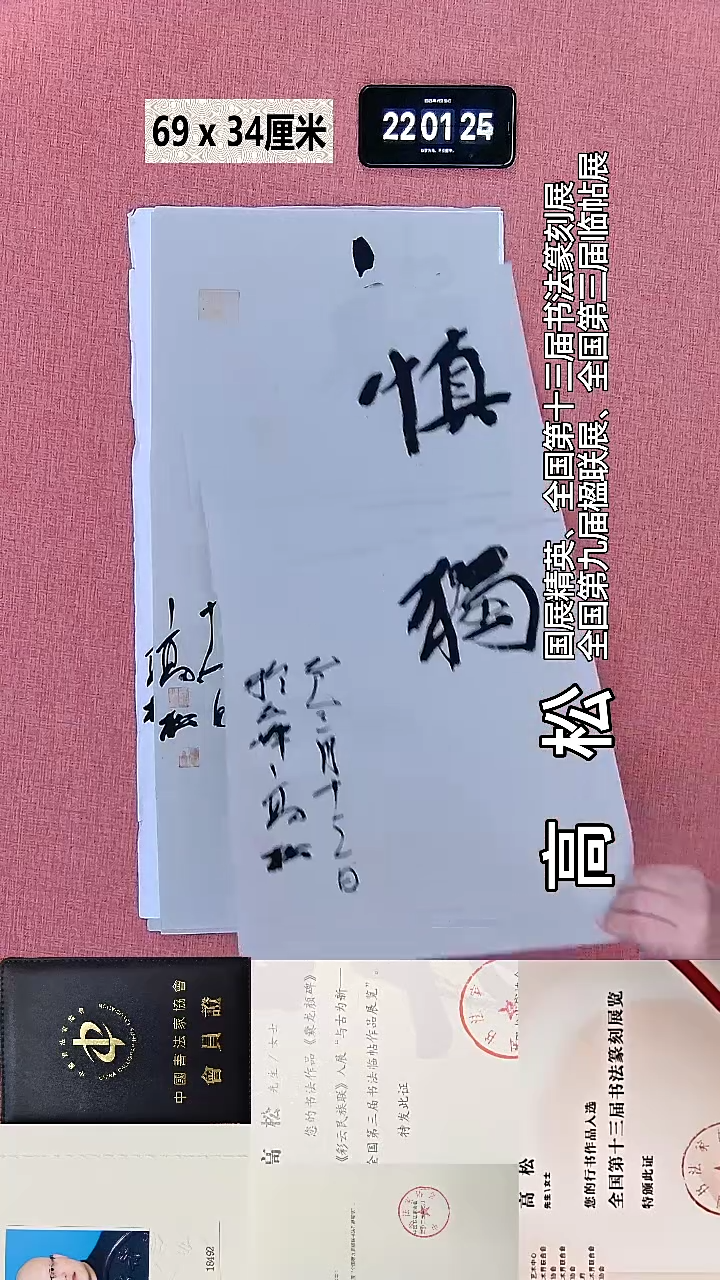 69 x 34厘米
22 01 25
慎
獨
高松
国展精英、全国第十三届书法篆刻展
全国第九届楹联展、全国第三届临帖展
高 松
中國書法家協會
會員證
18492
高 松 先生/女士
您的书法作品《爨龙颜碑》
《彩云民族联》入展“与古为新——
全国第三届书法临帖作品展览”。
特发此证
高 松
先生\女士
您的行书作品入选
全国第十三届书法篆刻展览
特颁此证